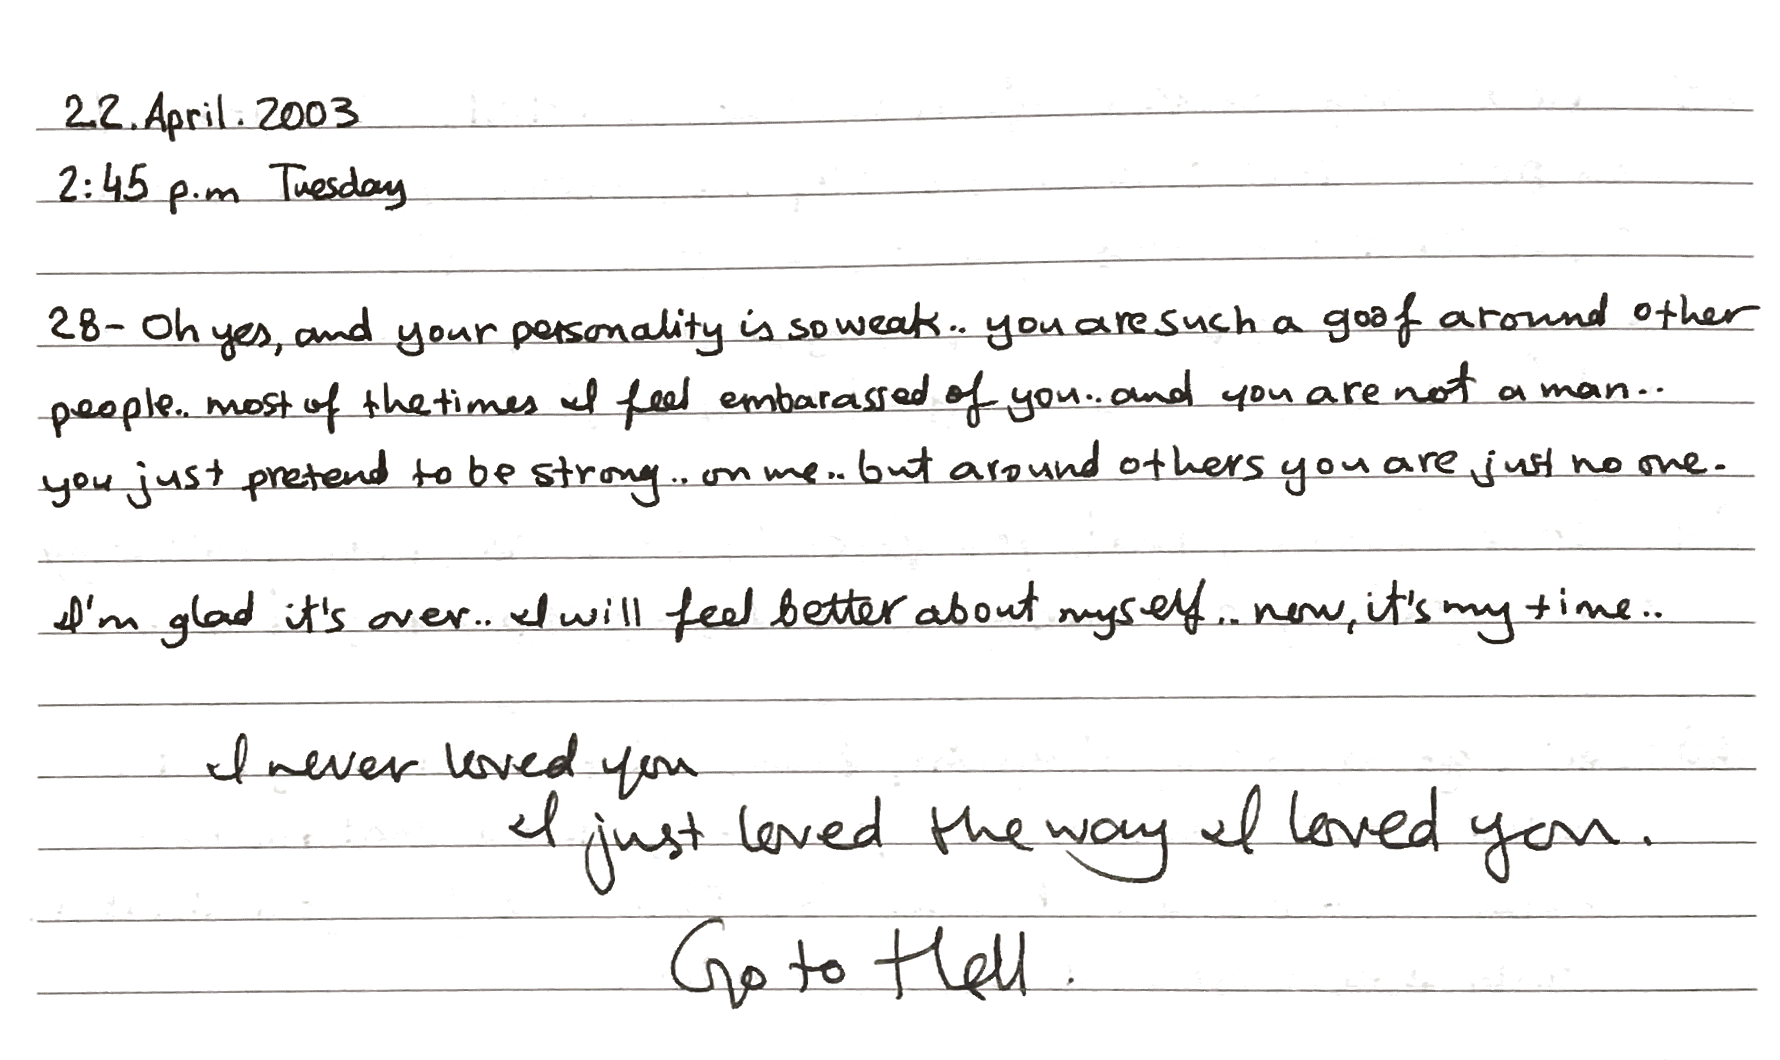 22. April. 2003
2:45 p.m Tuesday
28- Oh yes, and your personality is so weak.. you are such a goof around other
people.. most of the times I feel embarassed of you.. and you are not a man..
you just pretend to be strong.. on me.. but around others you are just no one.
I'm glad it's over.. I will feel better about myself.. now, it's my time..
I never loved you
I just loved the way I loved you.
Go to Hell.